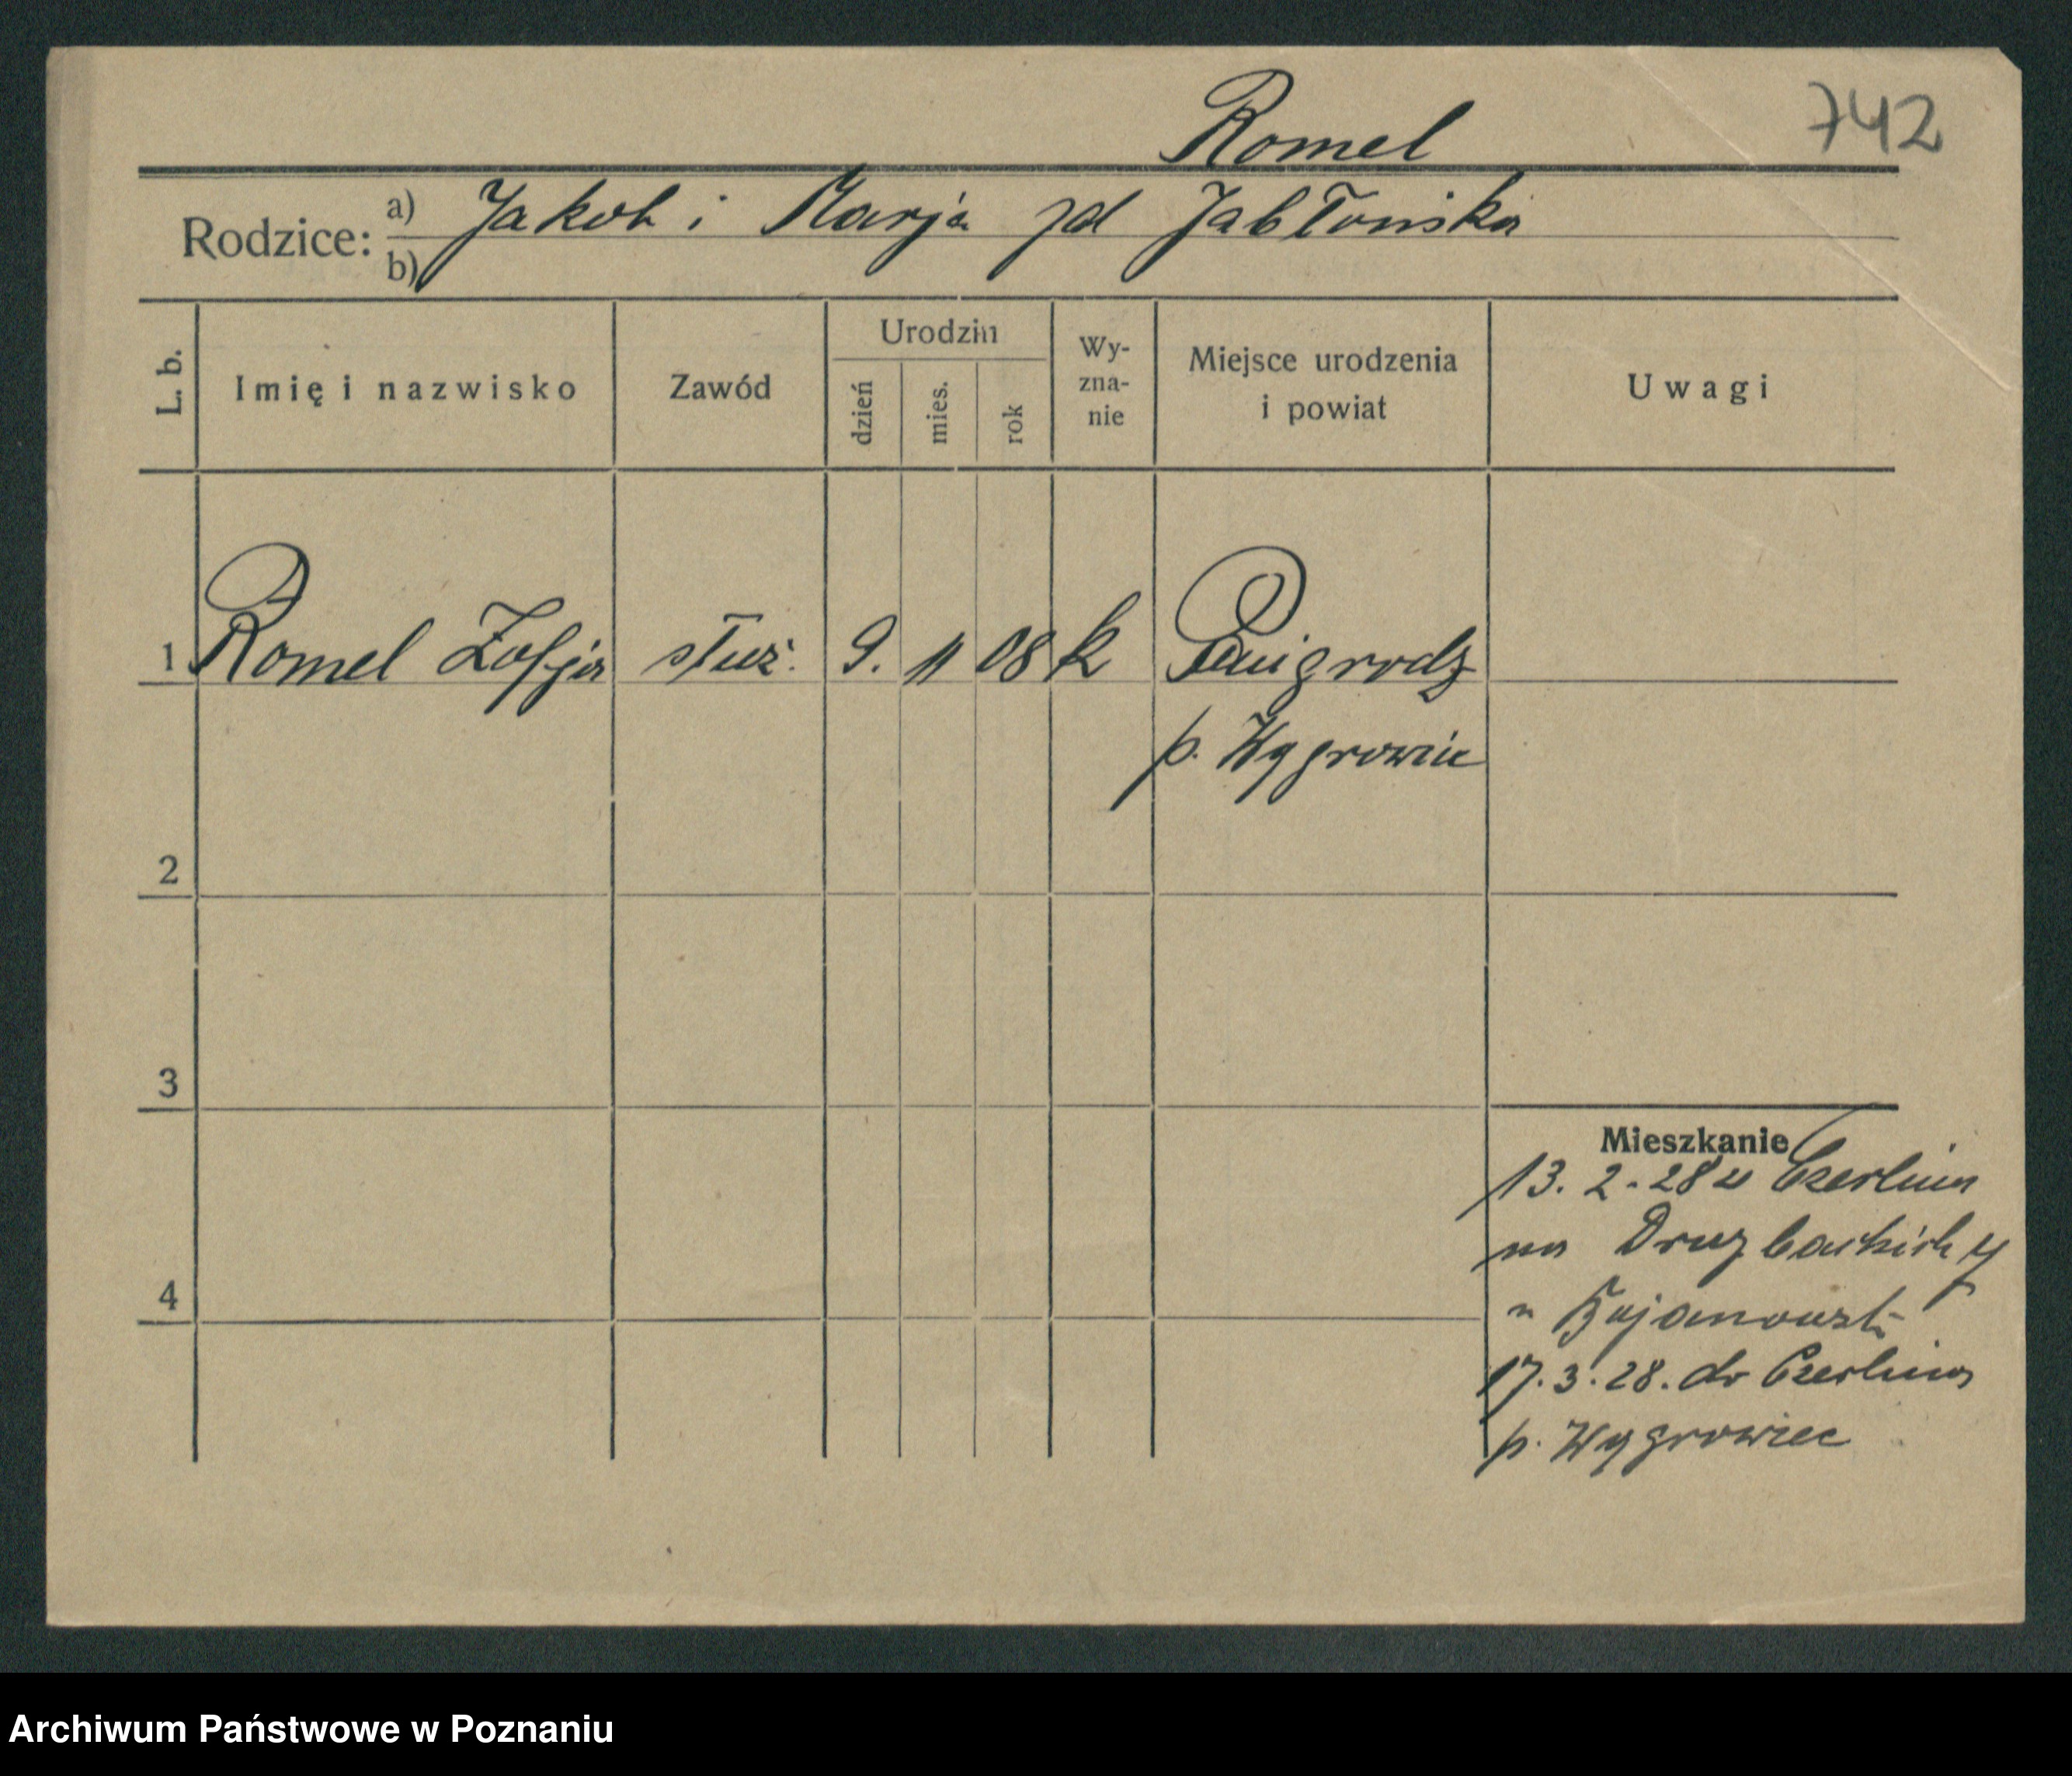 Romel
742
Rodzice: a) Jakob i Marja zd Jabłońska
b)
L. b.
Imię i nazwisko
Zawód
Urodzin
dzień
mies.
rok
Wy-
zna-
nie
Miejsce urodzenia
i powiat
Uwagi
1 Romel Zofja służ. 9. 11 08 k Panigrodz
p. Wągrowiec
2
3
4
Mieszkanie
13. 2. 28 Czerlina
na Drużbackich 4
u Bojanowsk.
17. 3. 28. do Czerlina
p. Wągrowiec
Archiwum Państwowe w Poznaniu